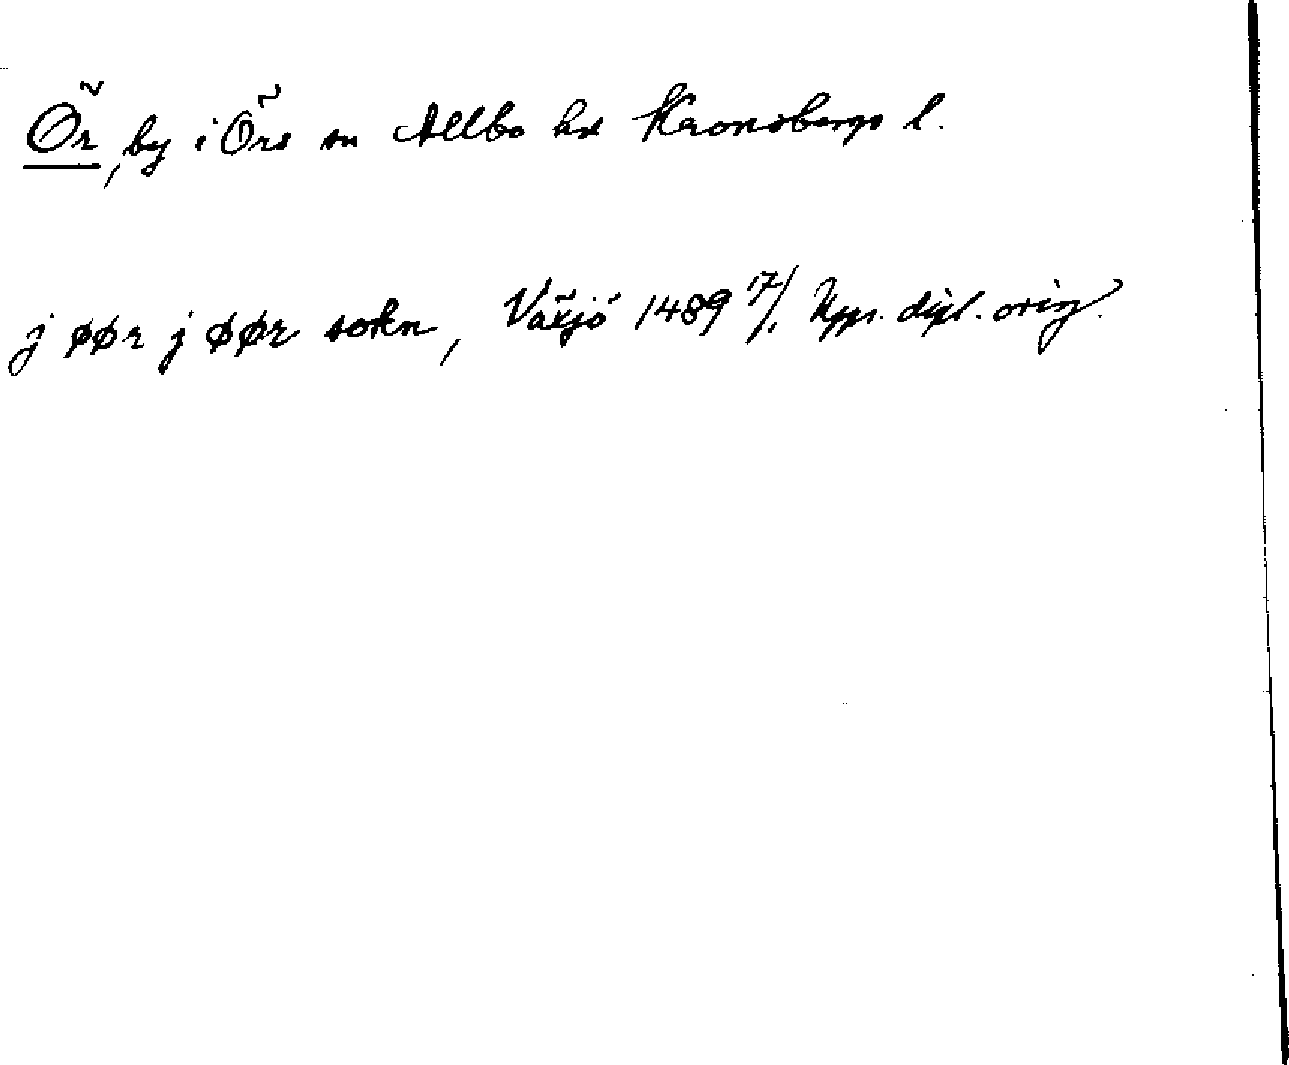 Ör, by i Örs sn Allbo hd Kronobergs l.
j øør j øør sokn, Växjö 1489 17/1. Upps. dipl. orig.